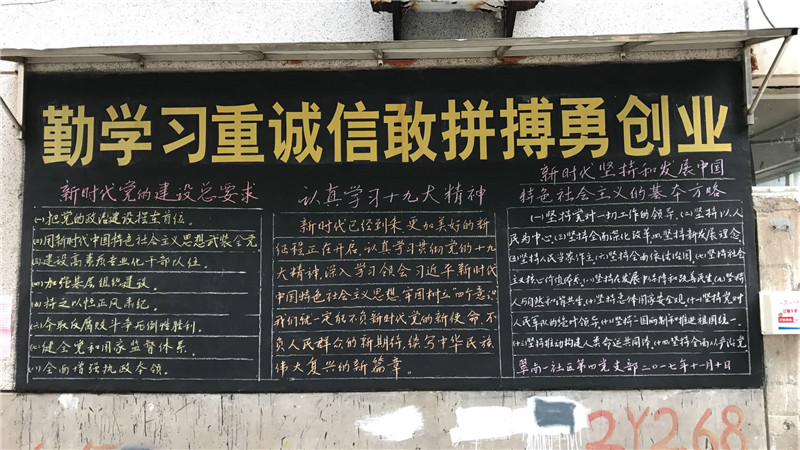 勤学习重诚信敢拼搏勇创业
新时代党的建设总要求
(一)把党的政治建设摆在首位.
(二)用新时代中国特色社会主义思想武装全党
(三)建设高素质专业化干部队伍.
(四)加强基层组织建设.
(五)持之以恒正风肃纪.
(六)夺取反腐败斗争压倒性胜利.
(七)健全党和国家监督体系.
(八)全面增强执政本领.
认真学习十九大精神
新时代已经到来更加美好的新
征程正在开展.认真学习贯彻党的十九
大精神,深入学习领会习近平新时代
中国特色社会主义思想.牢固树立"四个意识"
我们统一定能不负新时代党的新使命.不
负人民群众的新期待,续写中华民族
伟大复兴的新篇章.
新时代坚持和发展中国
特色社会主义的基本方略
(一)坚持党对一切工作的领导.(二)坚持以人
民为中心.(三)坚持全面深化改革.(四)坚持新发展理念.
(五)坚持人民当家作主(六)坚持全面依法治国.(七)坚持社会
主义核心价值体系.(八)坚持在发展中保障和改善民生.(九)坚持
人与自然和谐共生.(十)坚持总体国家安全观.(十一)坚持党对
人民军队的绝对领导.(十二)坚持一国两制和推进祖国统一.
(十三)坚持推动构建人类命运共同体.(十四)坚持全面从严治党.
翠南一社区第四党支部二0一七年十一月十日
2Y268